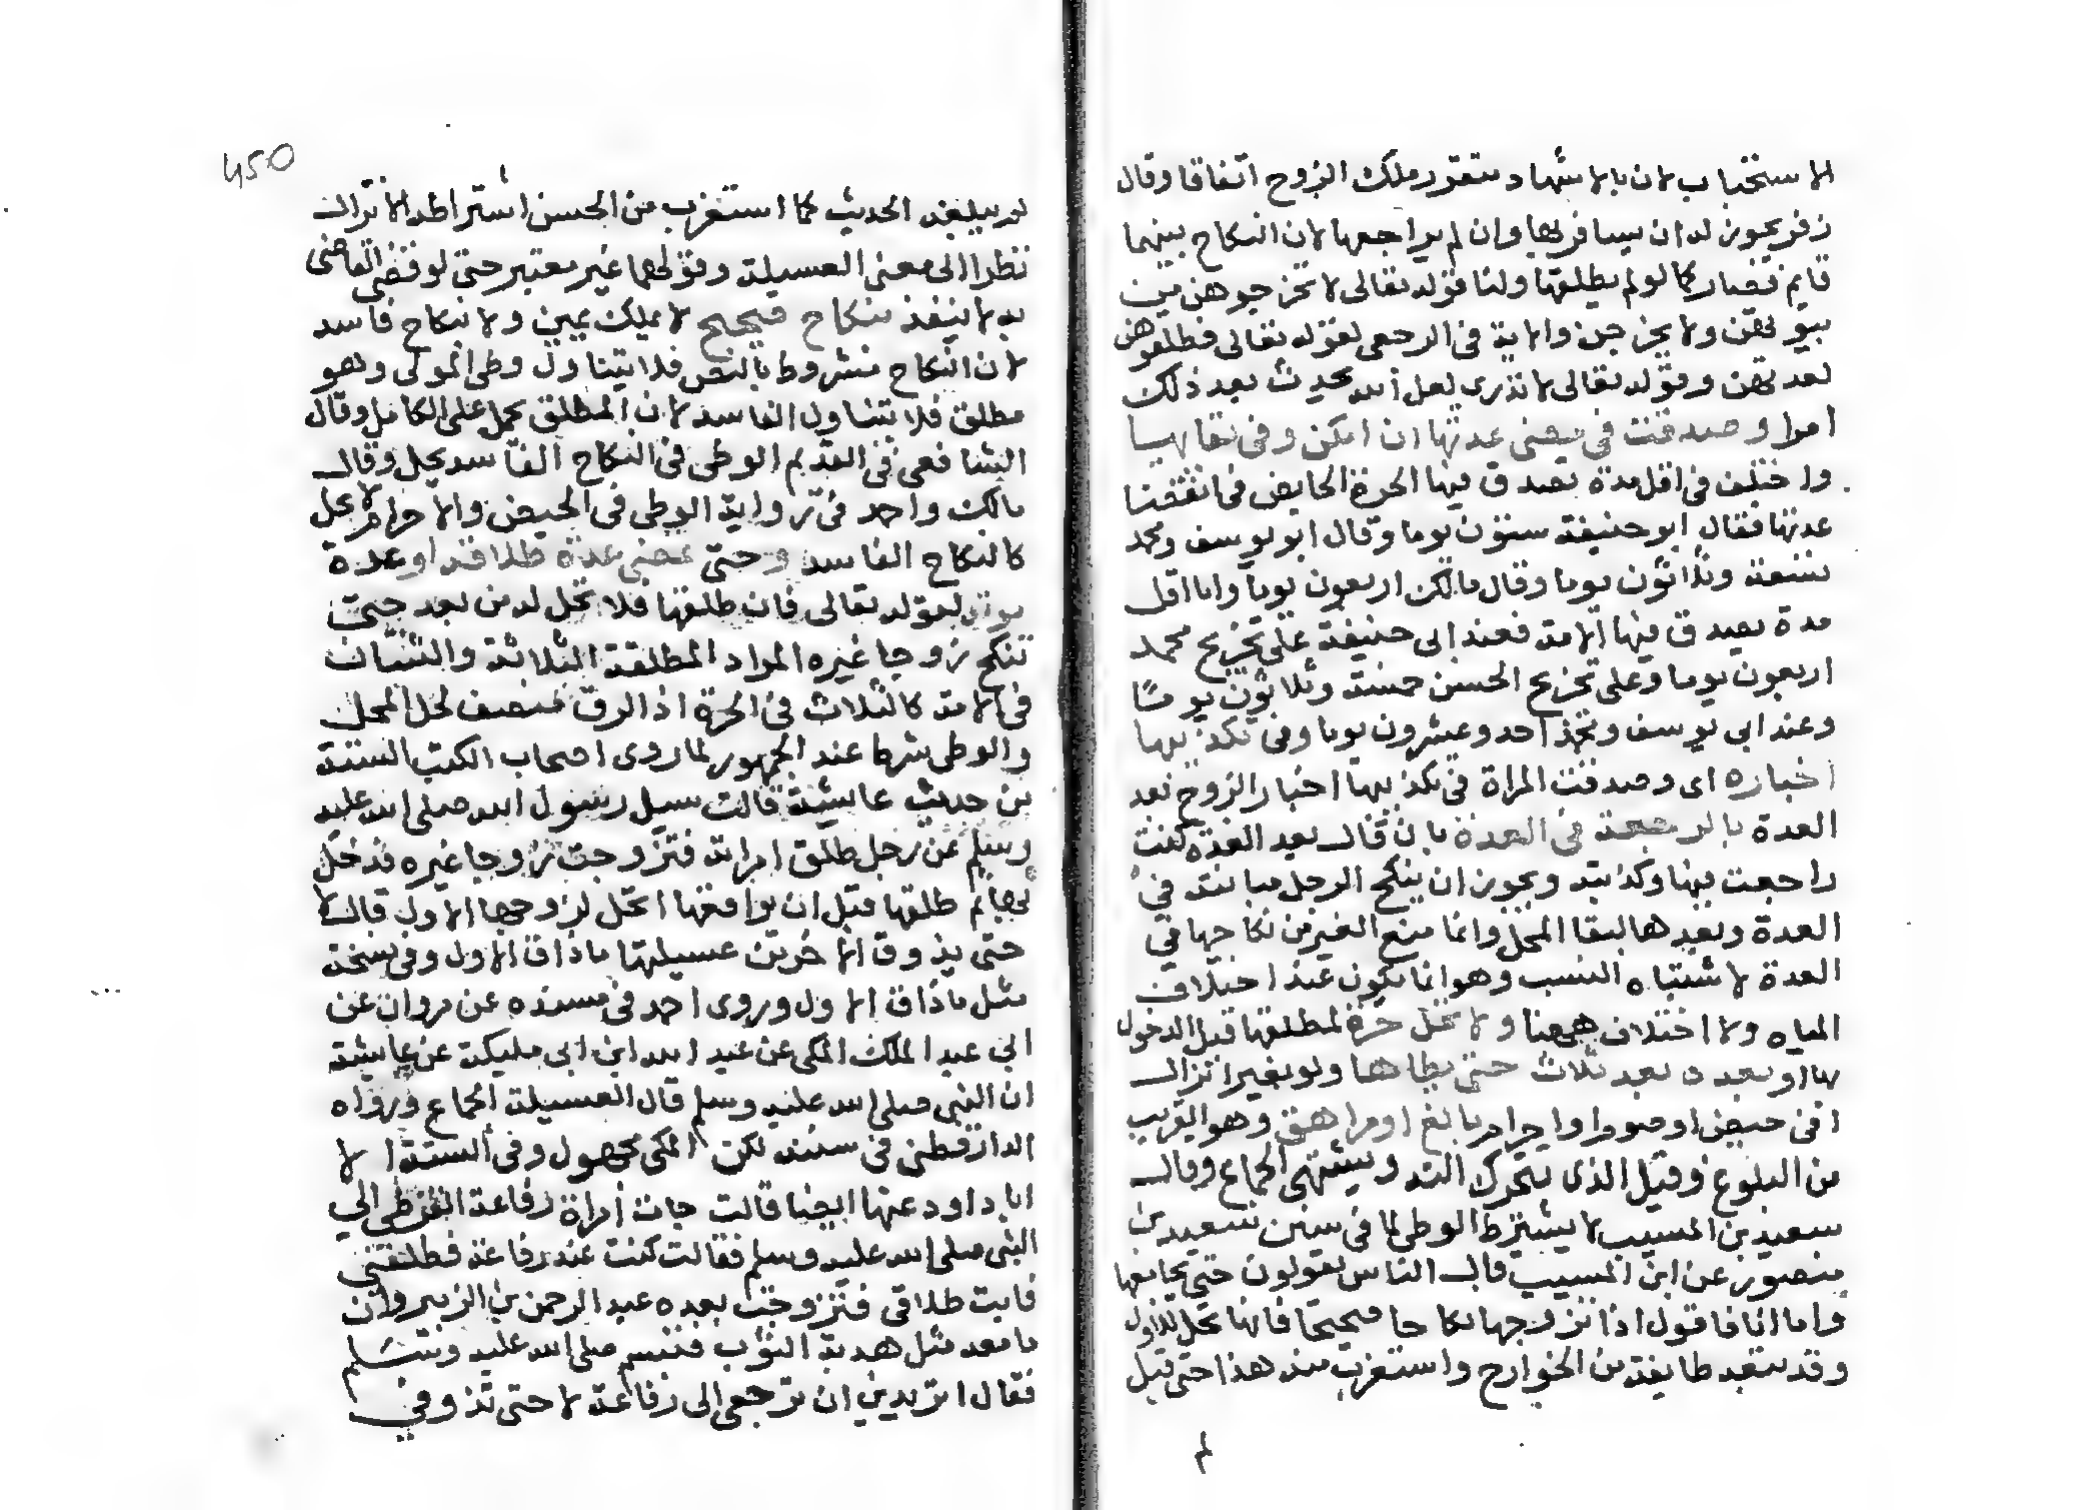 الاستحباب لان بالاشهاد يتقرر ملك الزوج اتفاقا وقال
زفر يجوز له ان يسافر بها وان لم يراجعها لان النكاح بينهما
قايم فصار كما لو لم يطلقها ولنا قوله تعالى لا تخرجوهن من
بيوتهن ولا يخرجن والاية في الرجعي لقوله تعالى فطلقوهن
لعدتهن وقوله تعالى لا تدري لعل الله يحدث بعد ذلك
امرا وصدقت في مضي عدتها ان امكن وفي بقايها
واختلف في اقل مدة تصدق فيها الحرة الحايض في انقضا
عدتها فقال ابو حنيفة ستون يوما وقال ابو يوسف ومحمد
تسعة وثلاثون يوما وقال مالك اربعون يوما واما اقل
مدة تصدق فيها الامة فعند ابي حنيفة على تخريج محمد
اربعون يوما وعلى تخريج الحسن خمسة وثلاثون يوما
وعند ابي يوسف ومحمد احد وعشرون يوما وفي تكذيبها
اخباره اي وصدقت المراة في تكذيبها اخبار الزوج بعد
العدة بالرجعة في العدة بان قال بعد العدة كنت
راجعت فيها وكذبته ويجوز ان ينكح الرجل مبانته في
العدة وبعدها لبقا المحل وانما منع الغير من نكاحها في
العدة لاشتباه النسب وهو انما يكون عند اختلاف
المياه ولا اختلاف ههنا ولا تحل حرة لمطلقها قبل الدخول
بها او بعده بعد ثلاث حتى يطاها ولو بغير انزال
او في حيض او صوم او احرام بالغ او مراهق وهو القريب
من البلوغ وقيل الذي يتحرك الته ويشتهي الجماع وقال
سعيد بن المسيب لا يشترط الوطي لما في سنن سعيد بن
منصور عن ابن المسيب قال الناس يقولون حتى يجامعها
واما انا فاقول اذا تزوجها نكاحا صحيحا فانها تحل للاول
وقد تبعه طايفة من الخوارج واستغرب منه هذا حتى قيل
لم
450
لم يبلغه الحديث كما استغرب من الحسن اشتراطه الانزال
نظرا الى معنى العسيلة وقولهما غير معتبر حتى لو قضى القاضي
به لا ينفذ بنكاح صحيح لا بملك يمين ولا نكاح فاسد
لان النكاح مشروط بالنص فلا يتناول وطي المولى وهو
مطلق فلا يتناول الفاسد لان المطلق يحمل على الكامل وقال
الشافعي في القديم الوطي في النكاح الفاسد يحل وقال
مالك واحمد في رواية الوطي في الحيض والاحرام لا يحل
كالنكاح الفاسد وحتى تمضي عدة طلاقه او عدة
موته لقوله تعالى فان طلقها فلا تحل له من بعد حتى
تنكح زوجا غيره المراد المطلقة الثلاثة والثنتان
في الامة كالثلاث في الحرة اذ الرق منصف لحل المحل
والوطي شرط عند الجمهور لما روى اصحاب الكتب الستة
من حديث عايشة قالت سيل رسول الله صلى الله عليه
وسلم عن رجل طلق امراته فتزوجت زوجا غيره فدخل
بها ثم طلقها قبل ان يواقعها اتحل لزوجها الاول قال لا
حتى يذوق الاخر من عسيلتها ما ذاق الاول وفي نسخة
مثل ما ذاق الاول وروى احمد في مسنده عن مروان عن
ابي عبد الملك المكي عن عبد الله ابن ابي مليكة عن عايشة
ان النبي صلى الله عليه وسلم قال العسيلة الجماع ورواه
الدارقطني في سننه لكن المكي مجهول وفي الستة الا
ابا داود عنها ايضا قالت جات امراة رفاعة القرظي الي
النبي صلى الله عليه وسلم فقالت كنت عند رفاعة فطلقني
فابت طلاقي فتزوجت بعده عبد الرحمن بن الزبير وان
ما معه مثل هدبة الثوب فتبسم صلى الله عليه وسلم
فقال اتريدين ان ترجعي الى رفاعة لا حتى تذوقي